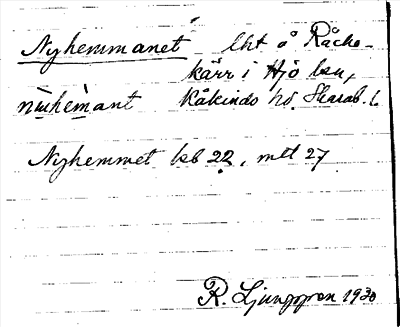 Nyhemmanet lht å Råcke-
kärr i Hjo lsn,
nuhemant Kåkinds hd. Skarab. l.
Nyhemmet kb 22, mtl 27
R. Ljunggren 1930